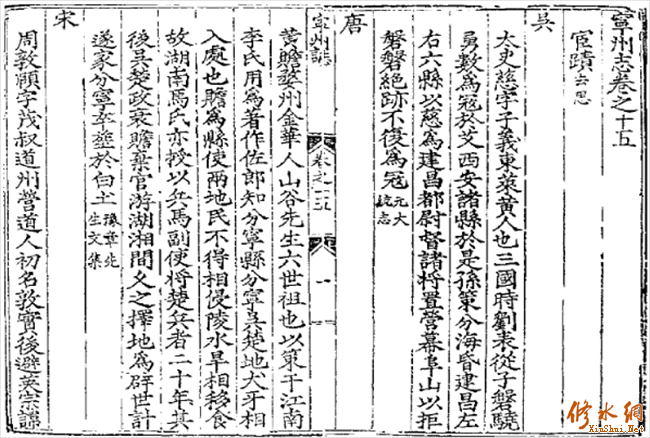 寧州志卷之十五
宦蹟 去思
吳
太史慈字子義東萊黄人也三國時劉表從子磐驍
勇數為冦於艾西安諸縣於是孫策分海昏建昌左
右六縣以慈為建昌都尉督諸将置營幕阜山以拒
磐磐絶跡不復為冦 元大統志
唐
寧州誌 卷之十五 一
黄瞻婺州金華人山谷先生六世祖也以策干江南
李氏用為著作佐郎知分寧縣分寧吳楚地犬牙相
入處也瞻為縣使兩地民不得相侵陵水旱相移食
故湖南馬氏亦授以兵馬副使将楚兵者二十年其
後吳楚政衰瞻棄官游湖湘間久之擇地為辟世計
遂家分寧卒塟於白土 豫章先生文集
宋
周敦頤字茂叔道州營道人初名敦實後避英宗諱
修水網
XiuShui.Net